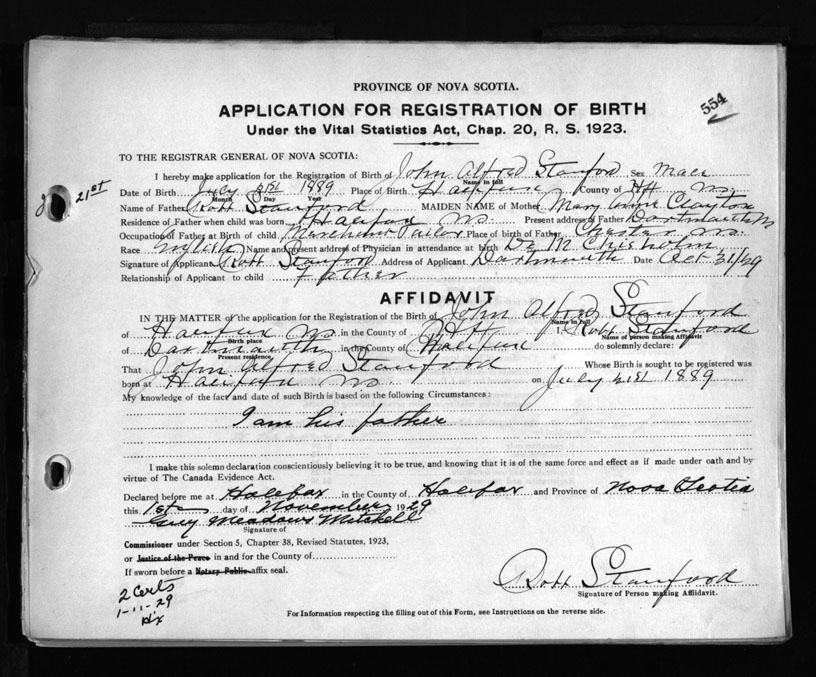 PROVINCE OF NOVA SCOTIA.
APPLICATION FOR REGISTRATION OF BIRTH
554
Under the Vital Statistics Act, Chap. 20, R. S. 1923.
TO THE REGISTRAR GENERAL OF NOVA SCOTIA:
I hereby make application for the Registration of Birth of John Alfred Stanford Sex Male
Name in full
21st
Date of Birth July 21st 1889 Place of Birth Halifax County of Hfx N.S.
Month Day Year
Name of Father Robt Stanford MAIDEN NAME of Mother Mary Anne Clayton
Residence of Father when child was born Halifax N.S. Present address of Father Dartmouth N.S
Occupation of Father at Birth of child Merchant Tailor Place of birth of Father Chester N.S.
Race English Name and present address of Physician in attendance at birth Dr M Chisholm
Signature of Applicant Robt Stanford Address of Applicant Dartmouth Date Oct 31/29
Relationship of Applicant to child Father
AFFIDAVIT
IN THE MATTER of the application for the Registration of the Birth of John Alfred Stanford
Name in full
of Halifax N.S. in the County of Hfx I, Robt Stanford
Birth place Name of person making Affidavit
of Dartmouth in the County of Halifax do solemnly declare:
Present residence
That John Alfred Stanford Whose Birth is sought to be registered was
born at Halifax N.S on July 21st 1889
My knowledge of the fact and date of such Birth is based on the following Circumstances:
I am his father
I make this solemn declaration conscientiously believing it to be true, and knowing that it is of the same force and effect as if made under oath and by
virtue of The Canada Evidence Act.
Declared before me at Halifax in the County of Halifax and Province of Nova Scotia
this 1st day of November 1929
Guy Meadows Mitchell
Signature of
Commissioner under Section 5, Chapter 38, Revised Statutes, 1923,
or Justice of the Peace in and for the County of
If sworn before a Notary Public affix seal.
Robt Stanford
Signature of Person making Affidavit.
2 Certs
1-11-29
Hx
For Information respecting the filling out of this Form, see Instructions on the reverse side.